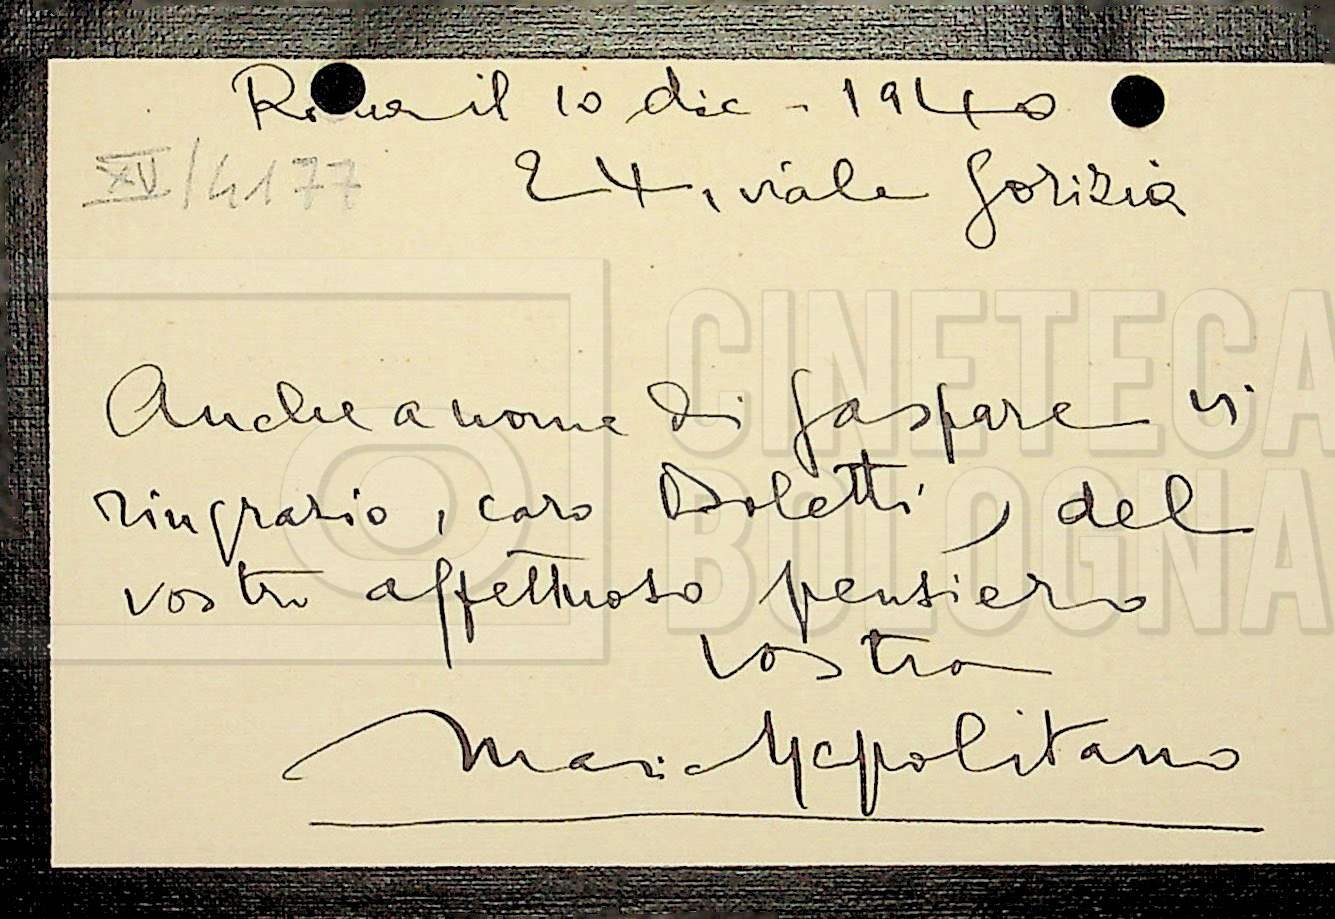 Roma il 10 dic - 1940
XV/4177
24, viale Gorizia
CINETECA
BOLOGNA
Anche a nome di Gaspare vi
ringrazio, caro Boletti, del
vostro affettuoso pensiero
vostro
Mario Napolitano